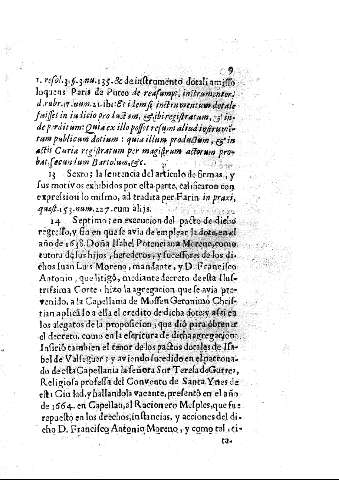 9
1. resol. 3. §. 3. nu. 135. & de instrumento dotali amisso
loquens Paris de Puteo de reasumpt. instrumentor.
d. rubr. 17. num. 21. ibi: Et idem si instrumentum dotale
fuisset in iudicio productum, & ibi registratum, & inde
perditum: Quia ex illo posset resumi aliud instrumentum
publicum dotium: quia illum productum, & in
actis Curiæ registratum per magistrum actorum probat,
secundum Bartolum, &c.
13 Sexto; la sentencia del articulo de firmas, y
sus motivos exhibidos por esta parte, calificaron con
expression lo mismo, ad tradita per Farin. in praxi,
quæst. 153. num. 227. cum alijs.
14 Septimo; en execucion del pacto de dicho
regresso, y fin en que se avia de emplear la dote, en el
año de 1658. Doña Isabel Potenciana Moreno, como
tutora de sus hijos, herederos, y sucessores de los dichos
Juan Luis Moreno, mandante, y D. Francisco
Antonio, que litigò, mediante decreto de esta Ilustrissima
Corte, hizo la agregacion, que se avia prevenido,
a la Capellania de Mossen Geronimo Christian
aplicado a ella el credito de dicha dote; y assi en
los alegatos de la proposicion, que diò para obtener
el decreto, como en la escritura de dicha agregacion,
insertò tambien el tenor de los pactos dotales de Isabel
de Valseguer; y aviendo sucedido en el patronado
de esta Capellania la señora Sor Teresa de Gurrea,
Religiosa professa del Convento de Santa Ynes de
esta Ciudad, y hallandola vacante, presentò en el año
de 1664. en Capellan, al Racionero Mesples, que fue
repuesto en los drechos, instancias, y acciones del dicho
D. Francisco Antonio Moreno, y como tal, ci-
ta-